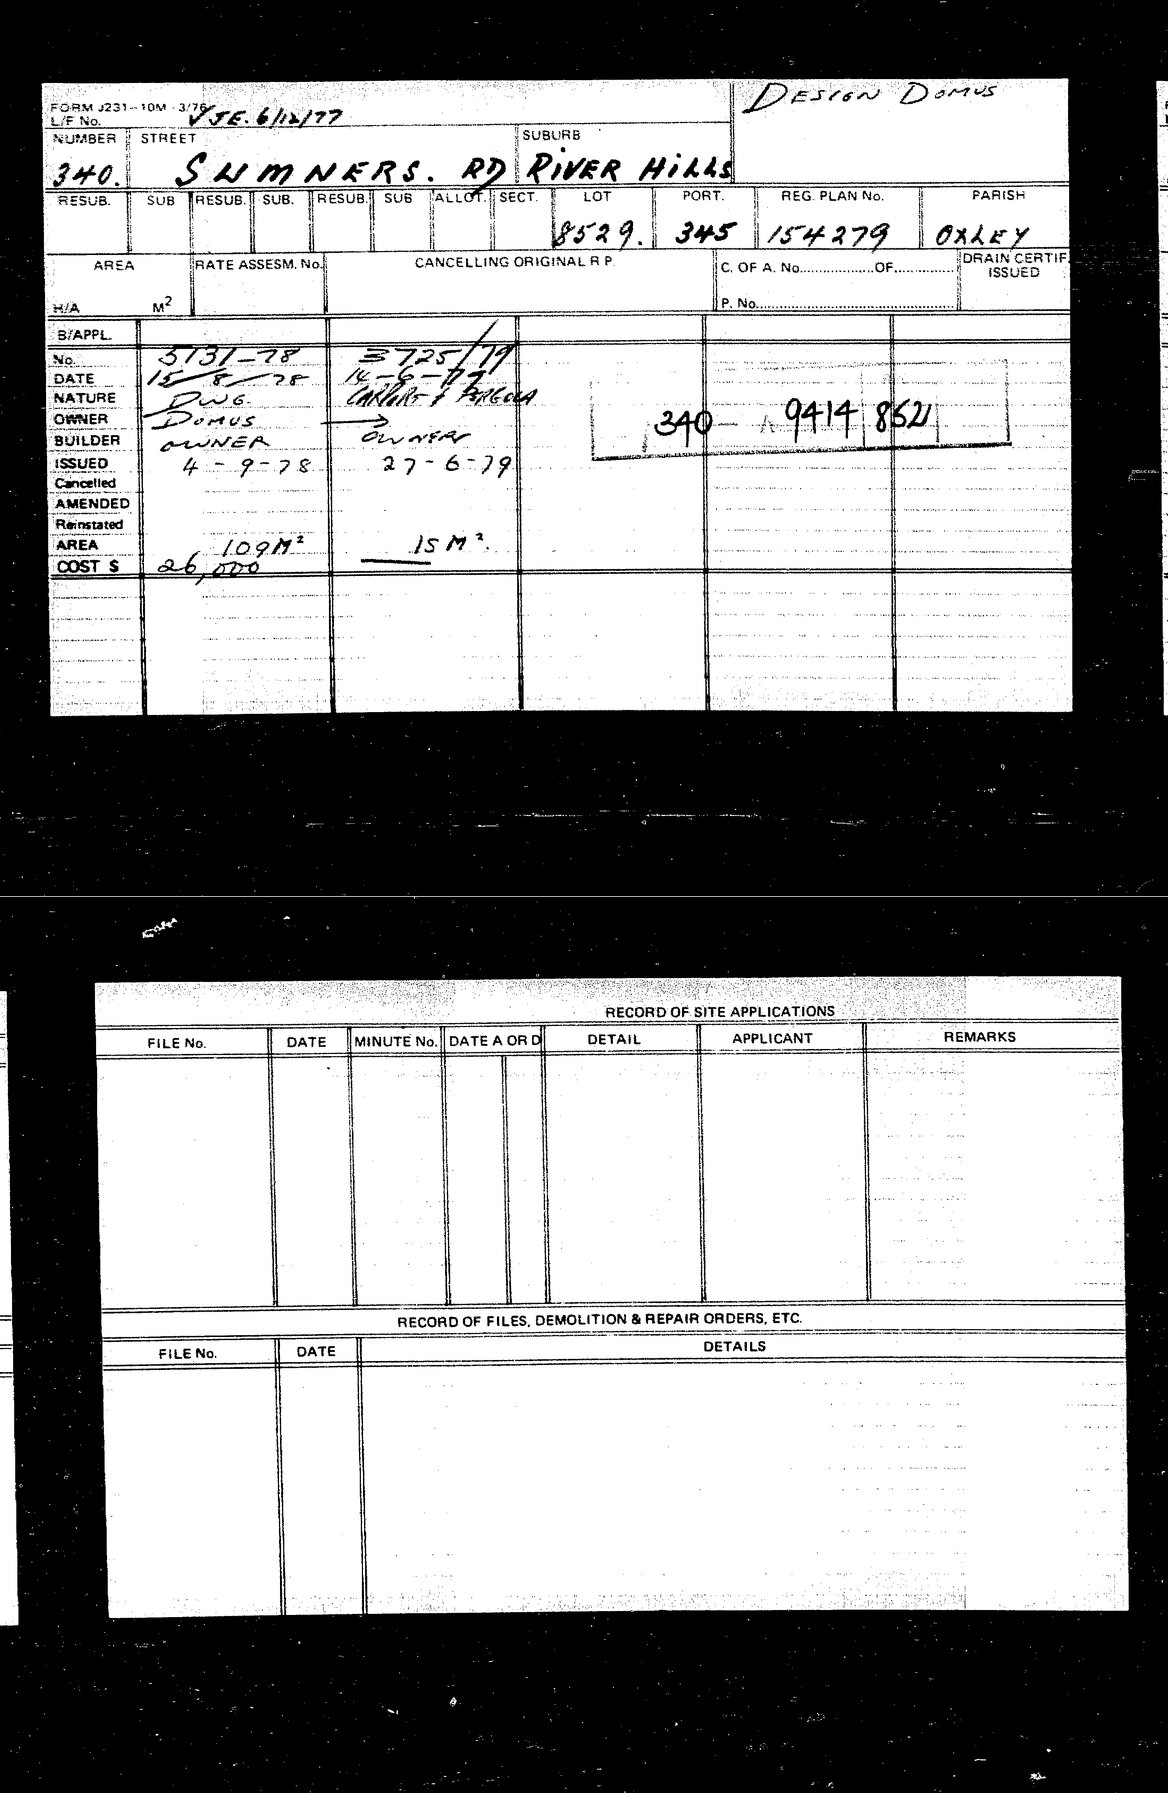 FORM J231-10M-3/76
L/F No. ✓ JE. 6/12/77
DESIGN DOMUS
NUMBER STREET SUBURB
340. SUMNERS. RD RIVER HILLS
RESUB. SUB RESUB. SUB. RESUB. SUB ALLOT. SECT. LOT PORT. REG. PLAN No. PARISH
8529. 345 154279 OXLEY
AREA RATE ASSESM. No. CANCELLING ORIGINAL R P. C. OF A. No. OF DRAIN CERTIF. ISSUED
H/A M² P. No.
B/APPL.
No. 5131-78 3725/79
DATE 15/8/78 14-6-79
NATURE DWG. CARPORT & PERGOLA
OWNER DOMUS →
BUILDER OWNER OWNER
340 - A 9414 862
ISSUED 4-9-78 27-6-79
Cancelled
AMENDED
Reinstated
AREA 109M² 15M².
COST $ 26,000
RECORD OF SITE APPLICATIONS
FILE No. DATE MINUTE No. DATE A OR D DETAIL APPLICANT REMARKS
RECORD OF FILES, DEMOLITION & REPAIR ORDERS, ETC.
FILE No. DATE DETAILS